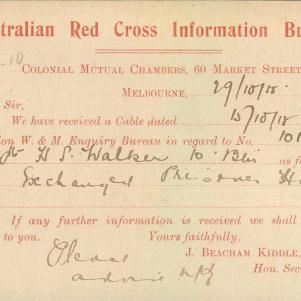 tralian Red Cross Information Bu
10
COLONIAL MUTUAL CHAMBERS, 60 MARKET STREET
MELBOURNE, 29/10/18.
Sir,
We have received a Cable dated 15/10/18
on W. & M. Enquiry Bureau in regard to No. 101
H S. Walker 10. Btn as fo
Exchanged Prisoner H
If any further information is received we shall
to you. Yours faithfully,
Please J. BEACHAM KIDDLE,
Hon. Sec